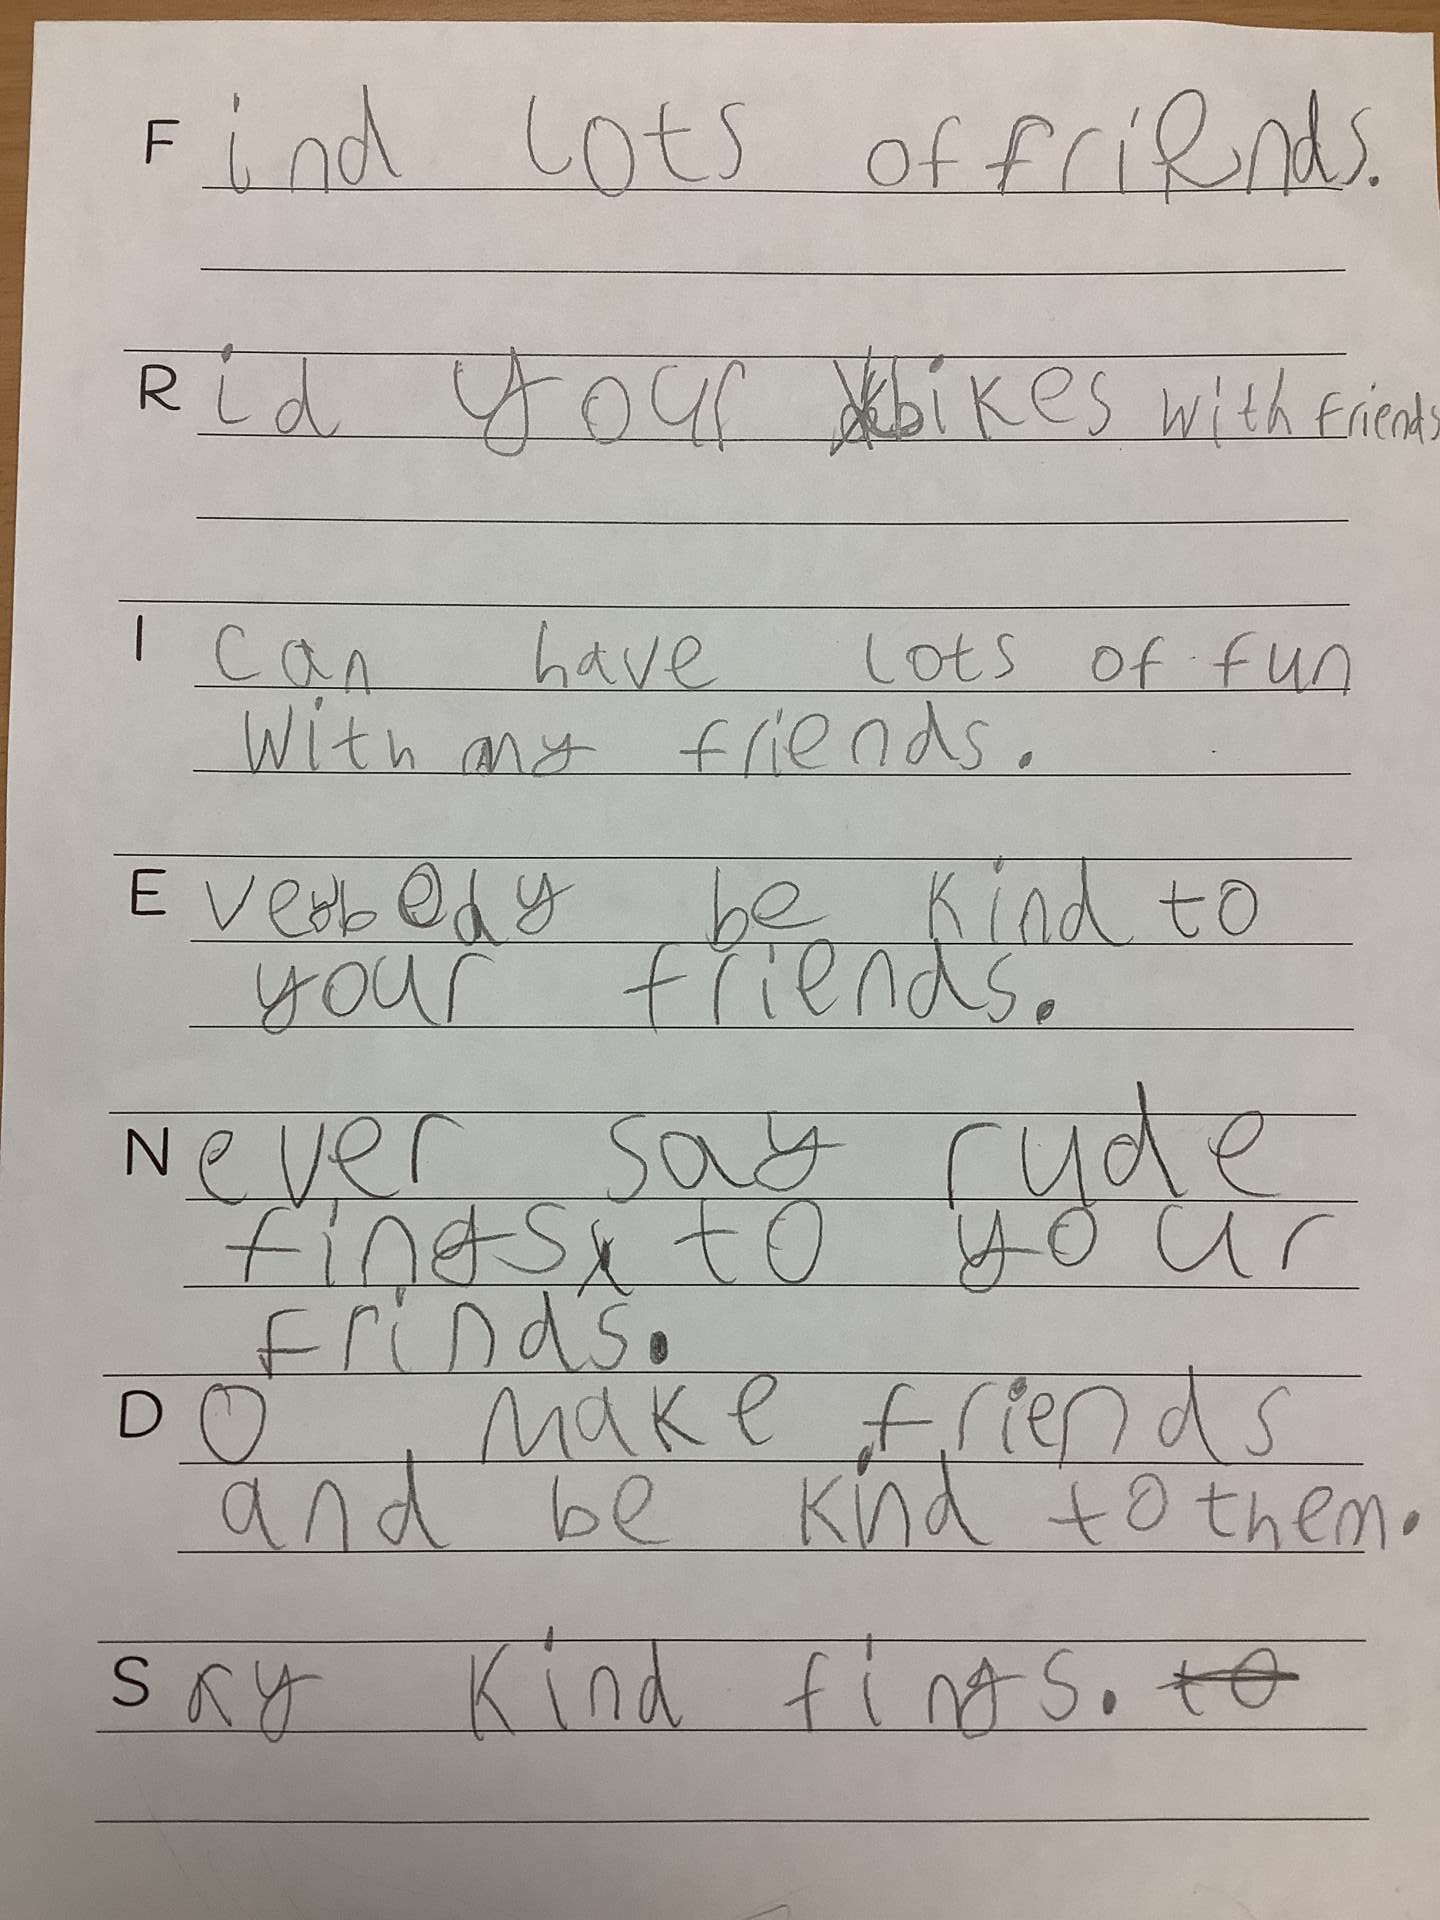 Find lots of friends.
Rid your bikes with friends
I can have lots of fun
with my friends.
Everbody be kind to
your friends.
Never say rude
fings to your
frinds.
DO make friends
and be kind to them.
Say kind fings. to